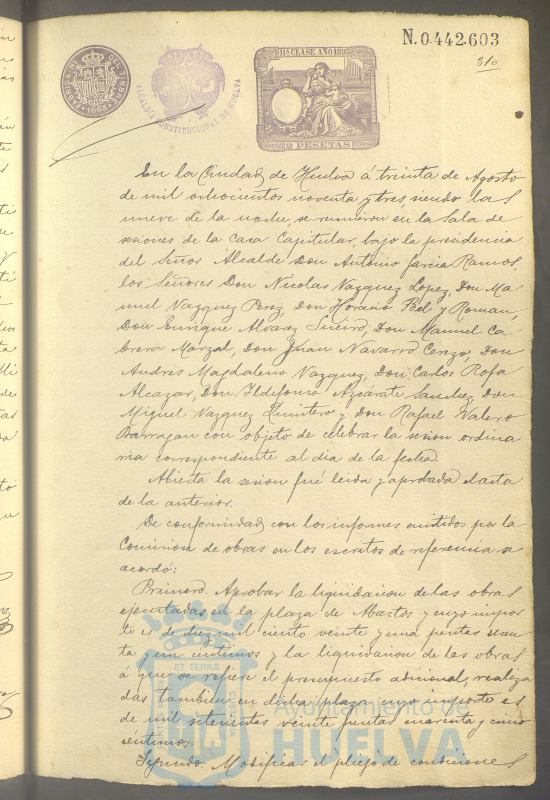 N.0.442.603
310
FABRICA NL. DEL TIMBRE
1893
ALCALDÍA CONSTITUCIONAL DE HUELVA
11ª CLASE. AÑO 1893
2 PESETAS
En la Ciudad de Huelva á treinta de Agosto
de mil ochocientos noventa y tres, siendo las
nueve de la noche, se reunieron en la Sala de
sesiones de la Casa Capitular, bajo la presidencia
del Señor Alcalde Don Antonio Garcia Ramos,
los Señores Don Nicolas Vazquez Lopez, Don Ma
nuel Vazquez Perez, Don Horacio Bel y Roman,
Don Enrique Alvarez Sueiro, Don Manuel Ca
brera Marzal, Don Juan Navarro Cerezo, Don
Andres Magdaleno Vazquez, Don Carlos Rofa
Alcazar, Don Ildefonso Azcárate Sanchez, Don
Miguel Vazquez Quintero y Don Rafael Valero
Barragan con objeto de celebrar la sesion ordina
ria correspondiente al dia de la fecha.
Abierta la sesion fué leida y aprobada el acta
de la anterior.
De conformidad con los informes emitidos por la
Comision de obras en los escritos de referencia se
acordó:
Primero. Aprobar la liquidacion de las obras
ejecutadas en la plaza de Abastos y cuyo impor
te es de diez mil ciento veinte y una pesetas sesen
ta y un centimos y la liquidacion de las obras
á que se refiere el presupuesto adicional, realiza
das tambien en dicha plaza cuyo importe es
de mil setecientas veinte pesetas cuarenta y cinco
céntimos.
Segundo. Modificar el pliego de condiciones
Ayuntamiento de
HUELVA